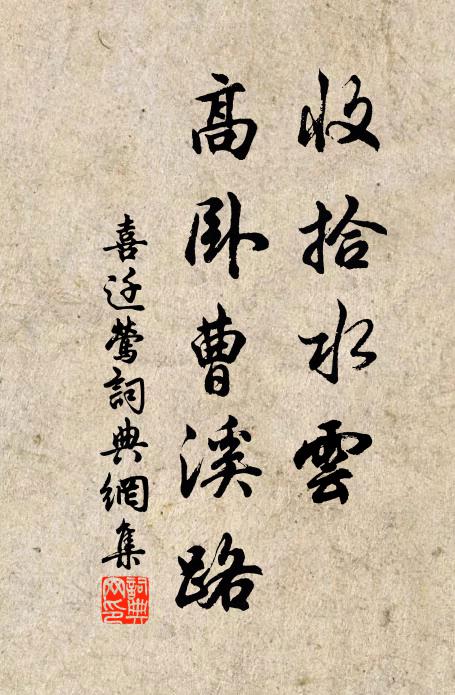 收拾水雲
高臥曹溪路
喜迁鶯詞典網集
詞典
网印